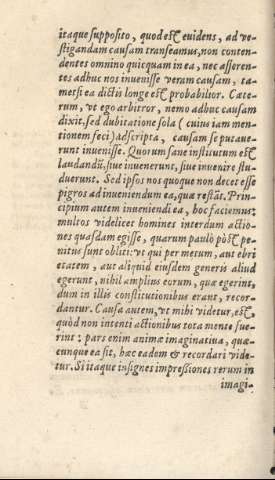 itaque supposito, quod est euidens, ad ve-
stigandam causam transeamus, non conten-
dentes omnino quicquam in ea, nec asseren-
tes adhuc nos inuenisse veram causam, ta-
metsi ea dictis longe est probabilior. Cete-
rum, vt ego arbitror, nemo adhuc causam
dixit, sed dubitatione sola ( cuius iam men-
tionem feci ) adscripta, causam se putaue-
runt inuenisse. Quorum sane institutum est
laudandū, siue inuenerunt, siue inuenire stu-
duerunt. Sed ipsos nos quoque non decet esse
pigros ad inueniendum ea, quæ restāt. Prin-
cipium autem inueniendi ea, hoc faciemus:
multos videlicet homines interdum actio-
nes quasdam egisse, quarum paulò pòst pe-
nitus sunt obliti: vt qui per metum, aut ebri
etatem, aut aliquid eiusdem generis aliud
egerunt, nihil amplius eorum, quæ egerint,
dum in illis constitutionibus erant, recor-
dantur. Causa autem, vt mihi videtur, est,
quòd non intenti actionibus tota mente fue-
rint: pars enim animæ imaginatiua, quæ-
cunque ea sit, hæc eadem & recordari vide-
tur. Si itaque insignes impressiones rerum in
imagi-